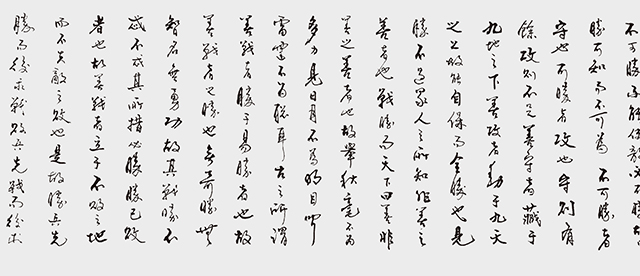 不可勝不能使敵
勝可知而不可為 不可勝者
守也可勝者攻也守則有
餘攻則不足善守者藏于
九地之下善攻者動于九天
之上故能自保而全勝也見
勝不過眾人之所知非善之
善者也戰勝而天下曰善非
善之善者也故舉秋毫不為
多力見日月不為明目聞
雷霆不為聰耳古之所謂
善戰者勝于易勝者也故
善戰者之勝也無奇勝無
智名無勇功故其戰勝不
忒不忒其所措必勝勝已敗
者也故善戰者立于不敗之地
而不失敵之敗也是故勝兵先
勝而後求戰敗兵先戰而後求